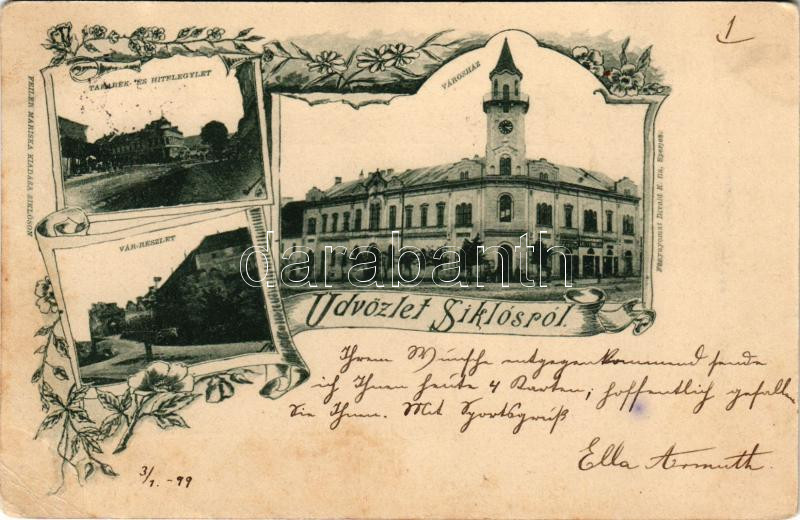 1
TAKARÉK- ÉS HITELEGYLET
VÁROSHÁZ
FEILER MARISKA KIADÁSA SIKLÓSON
VÁR-RÉSZLET
Fénynyomat Divald K. fia, Eperjes.
darabanth
Üdvözlet Siklósról.
Ihrem Wunsche entgegenkommend sende
ich Ihnen heute 4 Karten, hoffentlich gefallen
Sie Ihnen. Mit Sportsgruß
Ella Armuth.
3/1. -99